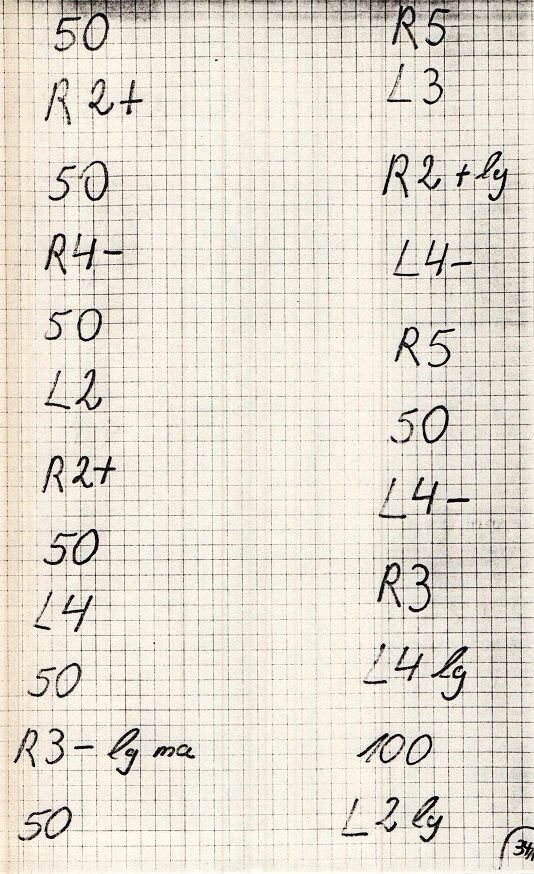 50
R2+
50
R4-
50
L2
R2+
50
L4
50
R3- lg ma
50
R5
L3
R2+lg
L4-
R5
50
L4-
R3
L4 lg
100
L2 lg